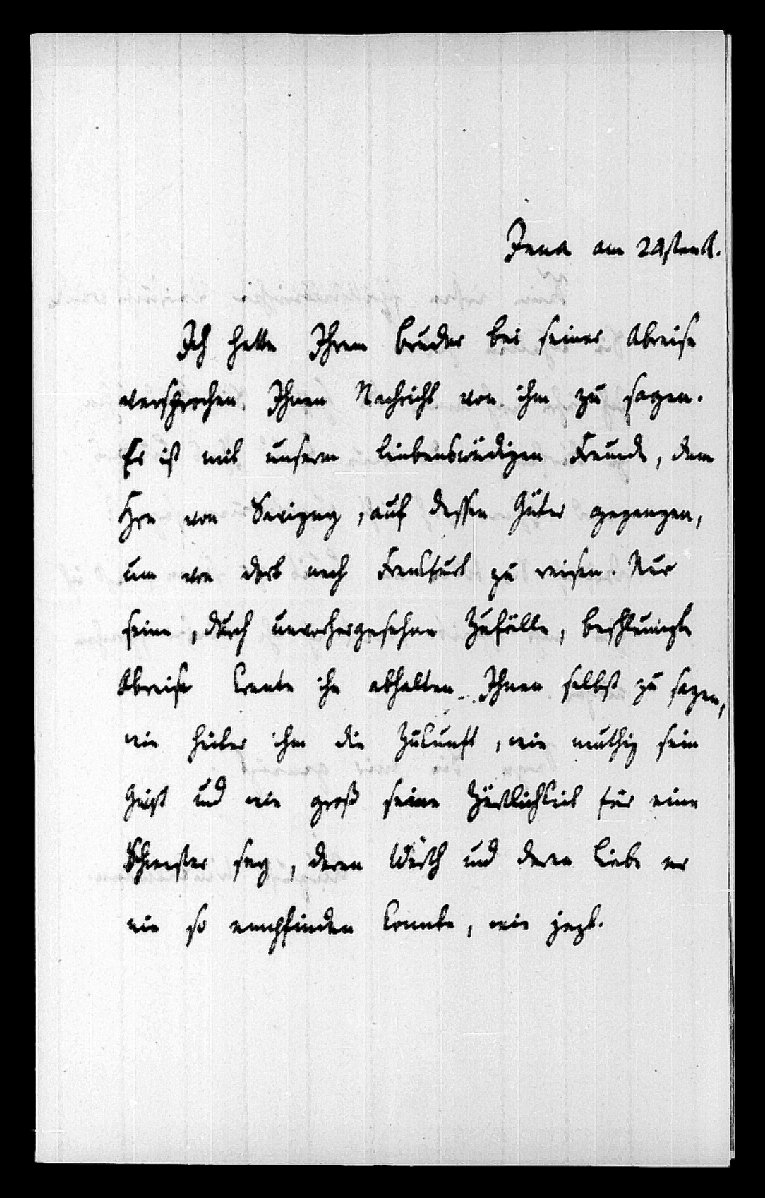 Jena am 24sten
Ich hatte Ihrem Bruder bei seiner Abreise
versprochen, Ihnen Nachricht von ihm zu sagen.
Er ist mit unserm liebenswürdigen Freunde, dem
Hrn von Savigny, auf dessen Güter gegangen,
um von dort nach Frankfurt zu reisen. Nur
seine, durch unvorhergesehne Zufälle, beschleunigte
Abreise konnte ihn abhalten Ihnen selbst zu sagen,
wie heiter ihm die Zukunft, wie muthig sein
Geist und wie groß seine Zärtlichkeit für eine
Schwester sey, deren Werth und deren Liebe er
nie so empfinden konnte, wie jezt.